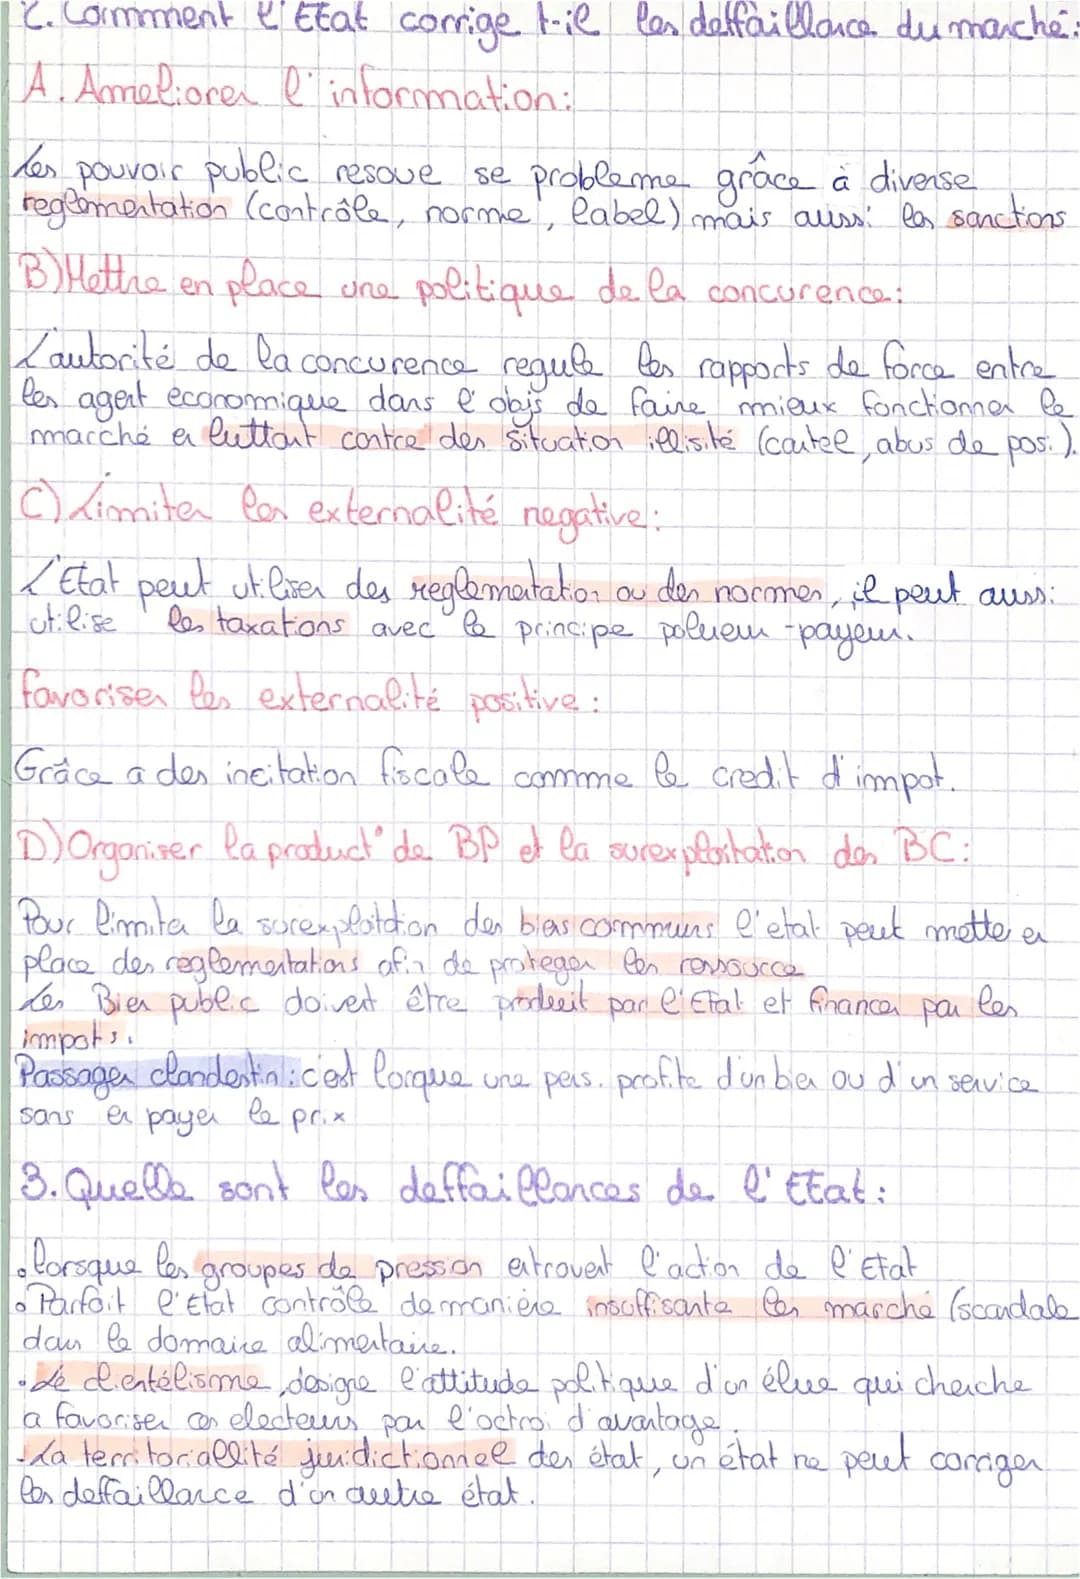 2. Comment l'Etat corrige t-il les deffaillance du marché :
A. Ameliorer l'information :
Les pouvoir public resoue se probleme grâce à diverse
reglementation (contrôle, norme, label) mais aussi les sanctions
B) Mettre en place une politique de la concurence :
L'autorité de la concurence regule les rapports de force entre
les agent economique dans l'objs de faire mieux fonctionner le
marché en luttant contre des situation illisité (cartel, abus de pos.).
C) Limiter les externalité negative :
L'Etat peut utiliser des reglementation ou des normes, il peut aussi
utilise les taxations avec le principe polueur-payeur.
favoriser les externalité positive :
Grâce a des incitation fiscale comme le credit d'impot.
D) Organiser la product° de BP et la surexploitation des BC :
Pour limiter la surexploitation des biens communs l'etat peut mettre en
place des reglementations afin de proteger les ressource
Les Bien public doivent être produit par l'Etat et financer par les
impots.
Passager clandestin : c'est lorque une pers. profite d'un bien ou d'un service
sans en payer le prix
3. Quelle sont les deffaillances de l'Etat :
• lorsque les groupes de pression entravent l'action de l'Etat
• Parfoit l'Etat contrôle de manière insuffisante les marché (scandale
dans le domaine alimentaire.
• Le clientélisme, designe l'attitude politique d'un élue qui cherche
a favoriser ces electeurs par l'octroi d'avantage.
• La territoriallité juridictionnel des état, un état ne peut corriger
les deffaillance d'un autre état.